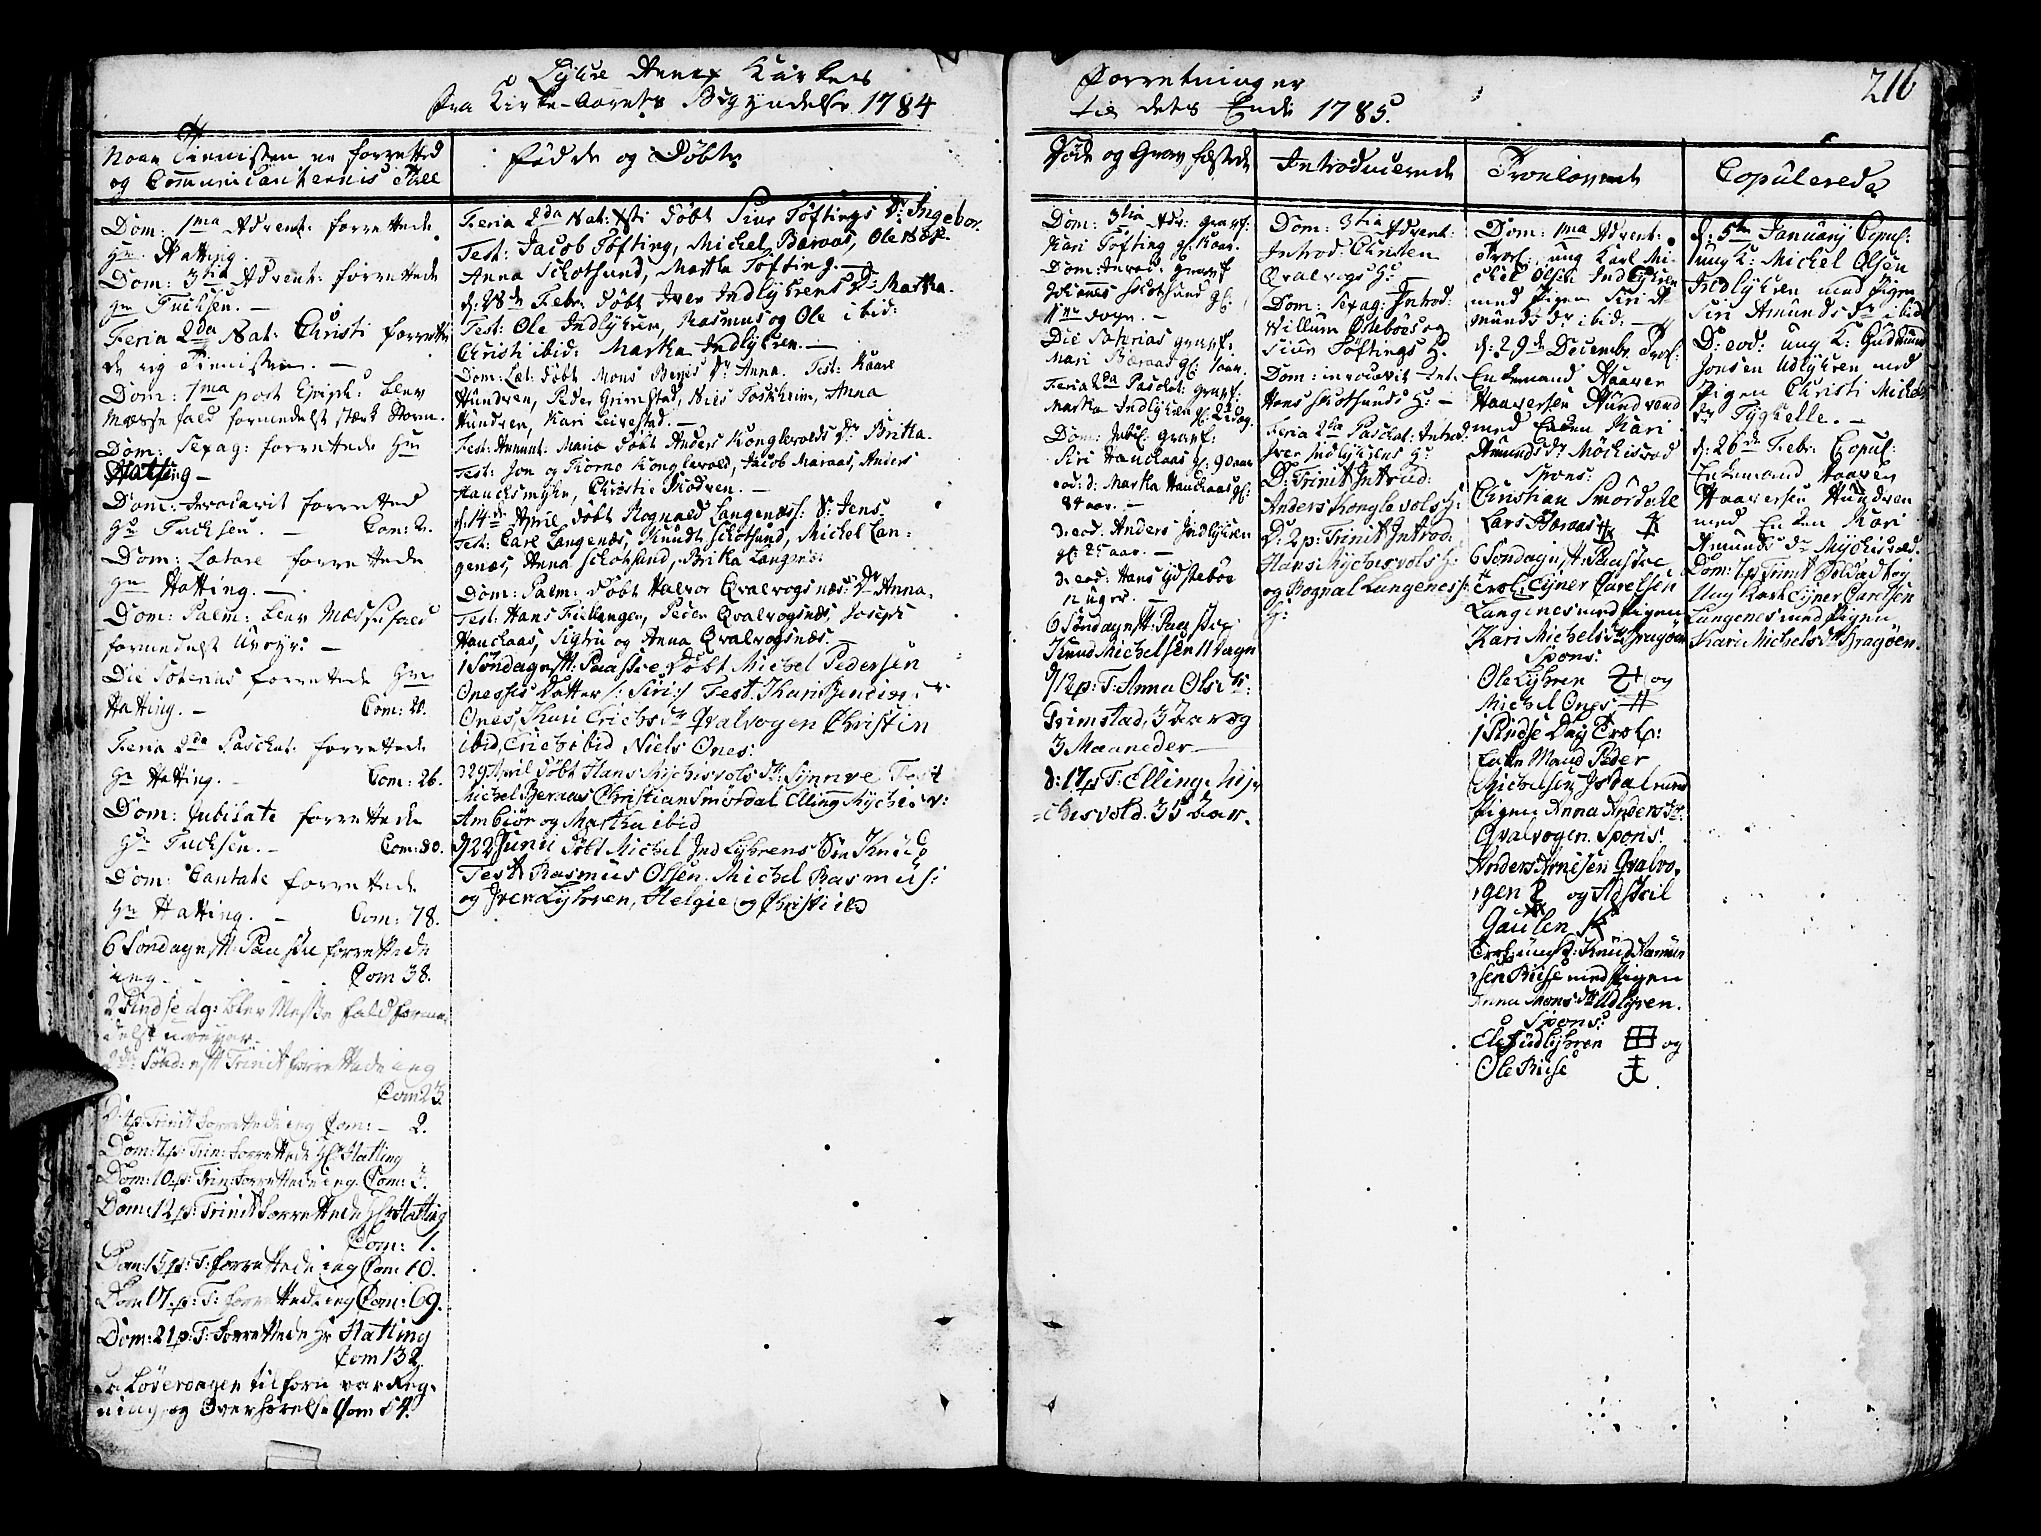 Lyhre Annex Kirkes Forretninger
fra Kirke-Aarets Begyndelse 1784 til dets Ende 1785.
216
Naar Tienisten er forretted
og Communicanternis Tall
Dom: 1ma Advent: forrettede
Hr Hatting.
Dom: 3tia Advent: forrettede
Hr Fuchsen. -
Feria 2da Nat: Christi forrette
de ieg Tienisten. -
Dom: 1ma post Epiph: blev
Messe fald formedelst stærk Storm.
Dom: Sexag: forrettede Hr
Hatting -
Dom: Invocavit forretted
Hr Fuchsen. - Com: 2.
Dom: Lætare forrettede
Hr Hatting. -
Dom: Palm: blev Messefald
formedelst Uveyr: -
Die Soterias forrettede Hr
Hatting. - Com: 20.
Feria 2da Paschat: forrettede
Hr Hatting. - Com: 26.
Dom: Jubilate forrettede
Hr Fuchsen. - Com: 30.
Dom: Cantate forrettede
Hr Hatting. - Com: 78.
6 Søndag efft: Paaske forrettede
ieg. - Com 38.
2 Pindse dag: blev Messe fald forme
delst uveyer.
Sønd: efft Trinit forrettede ieg
Com 23.
Trinit forrettede ieg Com: - 2.
Dom: 7 p: Trin: forrettede Hr Hatting
Dom: 10 p: Trin: forrettede ieg Com: 3.
Dom: 12 p: Trinit forrettede Hr Hatting
Com: 1.
Dom: 15 p: T: forrettede ieg Com 10.
Dom 17. p: T: forrettede ieg Com: 69.
Dom: 21 p: T: forrettede Hr Hatting
Com 132.
Løverdagen tilforn var Reg-
ning og Overhørelse Com 54.
Fødde og Døbte
Feria 2da Nat: Xsti døbt Siur Tøftings Dr: Ingebor.
Test: Jacob Tøfting, Michel Beraas, Ole
Anna Schotsund, Martha Tøfting. -
d: 28de Febr: døbt Iver Indlyhrens Dr Martha.
Test: Ole Indlyhren, Rasmus og Ole ibid:
Christi ibid: Martha Indlyhren. -
Dom: Læt: døbt Mons Dr Anna. Test: Kaare
Hundven, Peder Grimstad, Nies Toskheim, Anna
Hundven, Kari Leirstad. -
Fest: Annunt: Mariæ døbt Anders Konglevolds Dr Britha.
Test: Jon og Konglevold, Jacob Maraas, Anders
Christie -
d: 14de April døbt Rognald Langenæs: S: Jens
Test: Carl Langenæs, Knudt Schotsund, Michel Lan-
genæs, Anna Schotsund, Britha Langenæs:
Dom: Palm: døbt Halvor Qvalvogsnæs: Dr Anna.
Test: Hans Peder Qvalvogsnæs, Joseph
Hauchaas, Sigtru og Anna Qvalvogsnæs -
1 Søndag efft: Paaske døbt Michel Pedersen
Onesses Datter /: Siri:/ Test: Kari
Ones, Kari Erichsdr Qvalvogen Christin
ibid, Erich ibid Niels Ones:
29 April døbt Hans Mychisvols dr. Synnve Test
Michel Beraas Christian Smørdal Elling Mychisv:
Ambiør og Martha ibid
d 22 Junii døbt Michel Indlyhrens Søn Knud
Test Rasmus Olsen, Michel Rasmus:
og Iver Lyhren, Helgie og Christi ibd
Døde og Grav fæstede
Dom: 3tia Adv: gravf:
Kari Tøfting gl: 1 aar.
Dom: Invoc: gravf
Johannes Schotsund gl:
dage. -
Die Soterias gravf:
Mari Beraas gl: 1 aar.
Feria 2da Paschat: gravf:
Martha Indlyhren gl:
Dom: Jubil: gravf:
Siri Hauchaas gl: 90 aar
eod: d: Martha Hauchaas gl:
84 aar. -
d: eod: Anders Indlyhren
gl: 25 aar. -
d: eod: Hans Ydstebøe
12 Uger. -
6 Søndag efft: Paaske
Knud Michelsen 11 dagn
d/ 12 p: T: Anna Olsdr:
Grimstad, 3 Aar og
3 Maaneder -
d: 17 p T: Elling My-
=chisvold. 35 Aar.
Introducerede
Dom: 3tia Advent:
Introd: Christen
Qvalvogs H: -
Dom: Sexag: Introd:
Willum Østebøes og
Siur Tøftings H.
Dom: invocavit Int:
Hans Schotsunds H: -
Feria 2da Paschat: Introd:
Iver Indlyhrens H:
D: Trinit Introd:
Anders Konglevols H:
D: 2 p: Trinit Introd:
Hans Mychisvols H:
og Rognal Langenes
H:
Troelovede
Dom: 1ma Advent:
Trol: ung Karl Mi-
chel Olsen Indlyhren
med Pigen Siri A-
munds dr ibid: -
d: 29de Decembr. Trol:
Enkemand Haaver
Haaversen Hundven
med Enken Kari
Amunds dr Mychisvold
Spons:
Christian Smørdahl
Lars Beraas
6 Søndag efft: Paaske
Trol: Ejner Carelsen
Langenes med Pigen
Kari Michelsdr Kragøen
Spons:
Ole Lyhren og
Michel Ones
1 Pindse Dag Trol:
Enke Mand Peder
Michelsen Josdal med
Pigen Anna Andersdr.
Qvalvogen. Spons:
Anders Arnesen Qvalvo-
gen og
Gaulen
Knud Rasmus
sen Riise med Pigen
Anna Monsdr Udlyren.
Spons:
Ole Indlyhren og
Ole Riise
Copulerede
d: 5te January Copul:
ung K: Michel Olsen
Indlyhren med Pigen
Siri Amunds dr ibid
D: eod: ung K: Gudmund
Jonsen Udlyhren med
Pigen Christi Michels
dr Tyghelle. -
d: 26de Febr: Copul:
Enkemand Haaver
Haaversen Hundven
med Enken Kari
Amunds dr Mychisvold.
Dom: 7 p: Trinit
Ung Karl Ejner Carelsen
Langenes med Pigen
Kari Michelsdr Kragøen.